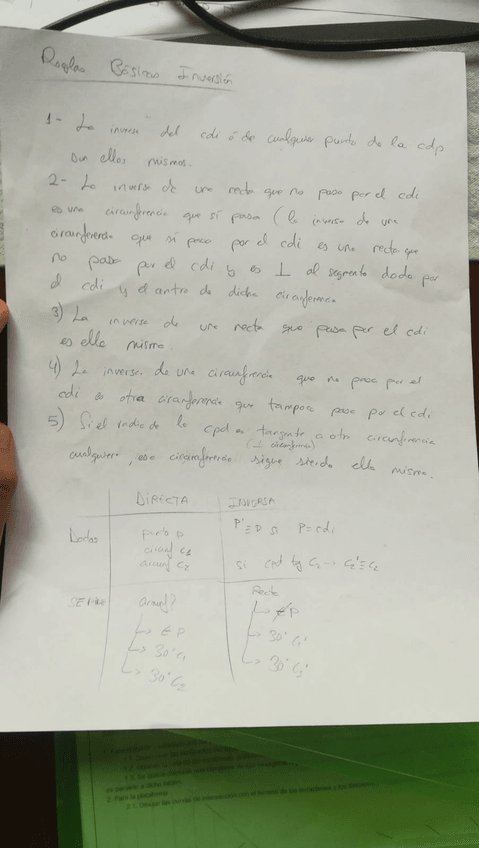 Reglas Básicas Inversión
1- La inversa del cdi ó de cualquier punto de la cdp
son ellos mismos.
2- La inversa de una recta que no pasa por el cdi
es una circunferencia que sí pasa (la inversa de una
circunferencia que sí pasa por el cdi es una recta que
no pasa por el cdi y es ⊥ al segmento dado por
el cdi y el centro de dicha circunferencia
3) La inversa de una recta que pasa por el cdi
es ella misma.
4) La inversa de una circunferencia que no pasa por el
cdi es otra circunferencia que tampoco pasa por el cdi
5) Si el radio de la cpd es tangente a otra circunferencia
(⊥ circunferencia)
cualquiera, esa circunferencia sigue siendo ella misma.
DIRECTA INVERSA
Dados punto P P'≡P si P=cdi
circunf C1
circunf C2 si cpd tg C2 → C2'≡C2
SE PIDE circunf? Recta
↳ ∈ P ↳ ∉ P
↳ 30° C1 ↳ 30° C1'
↳ 30° C2 ↳ 30° C2'
2. Para la plataforma